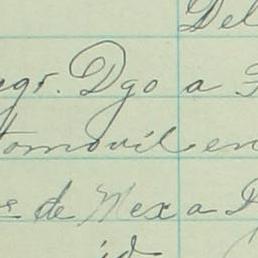 Del
gr. Dgo a
tomovil en
de Mex a
id